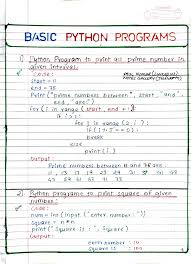 BASIC PYTHON PROGRAMS
1) Python Program to print all prime number in
given Interval.
Code:
start = 11
end = 75
Print ("prime numbers between", start, "and",
end, "are")
for i in range (start, end + 1):
if i > 1:
for j in range (2, i):
if (i % j == 0):
break
else:
print (i)
Output:
Prime numbers between 11 and 75 are:
2) Python programe to print square of given
number.
Code:
num = int (input ("enter number: "))
Square = num *
print ("Square is: ", Square)
Output:
number : 10
Square is : 100